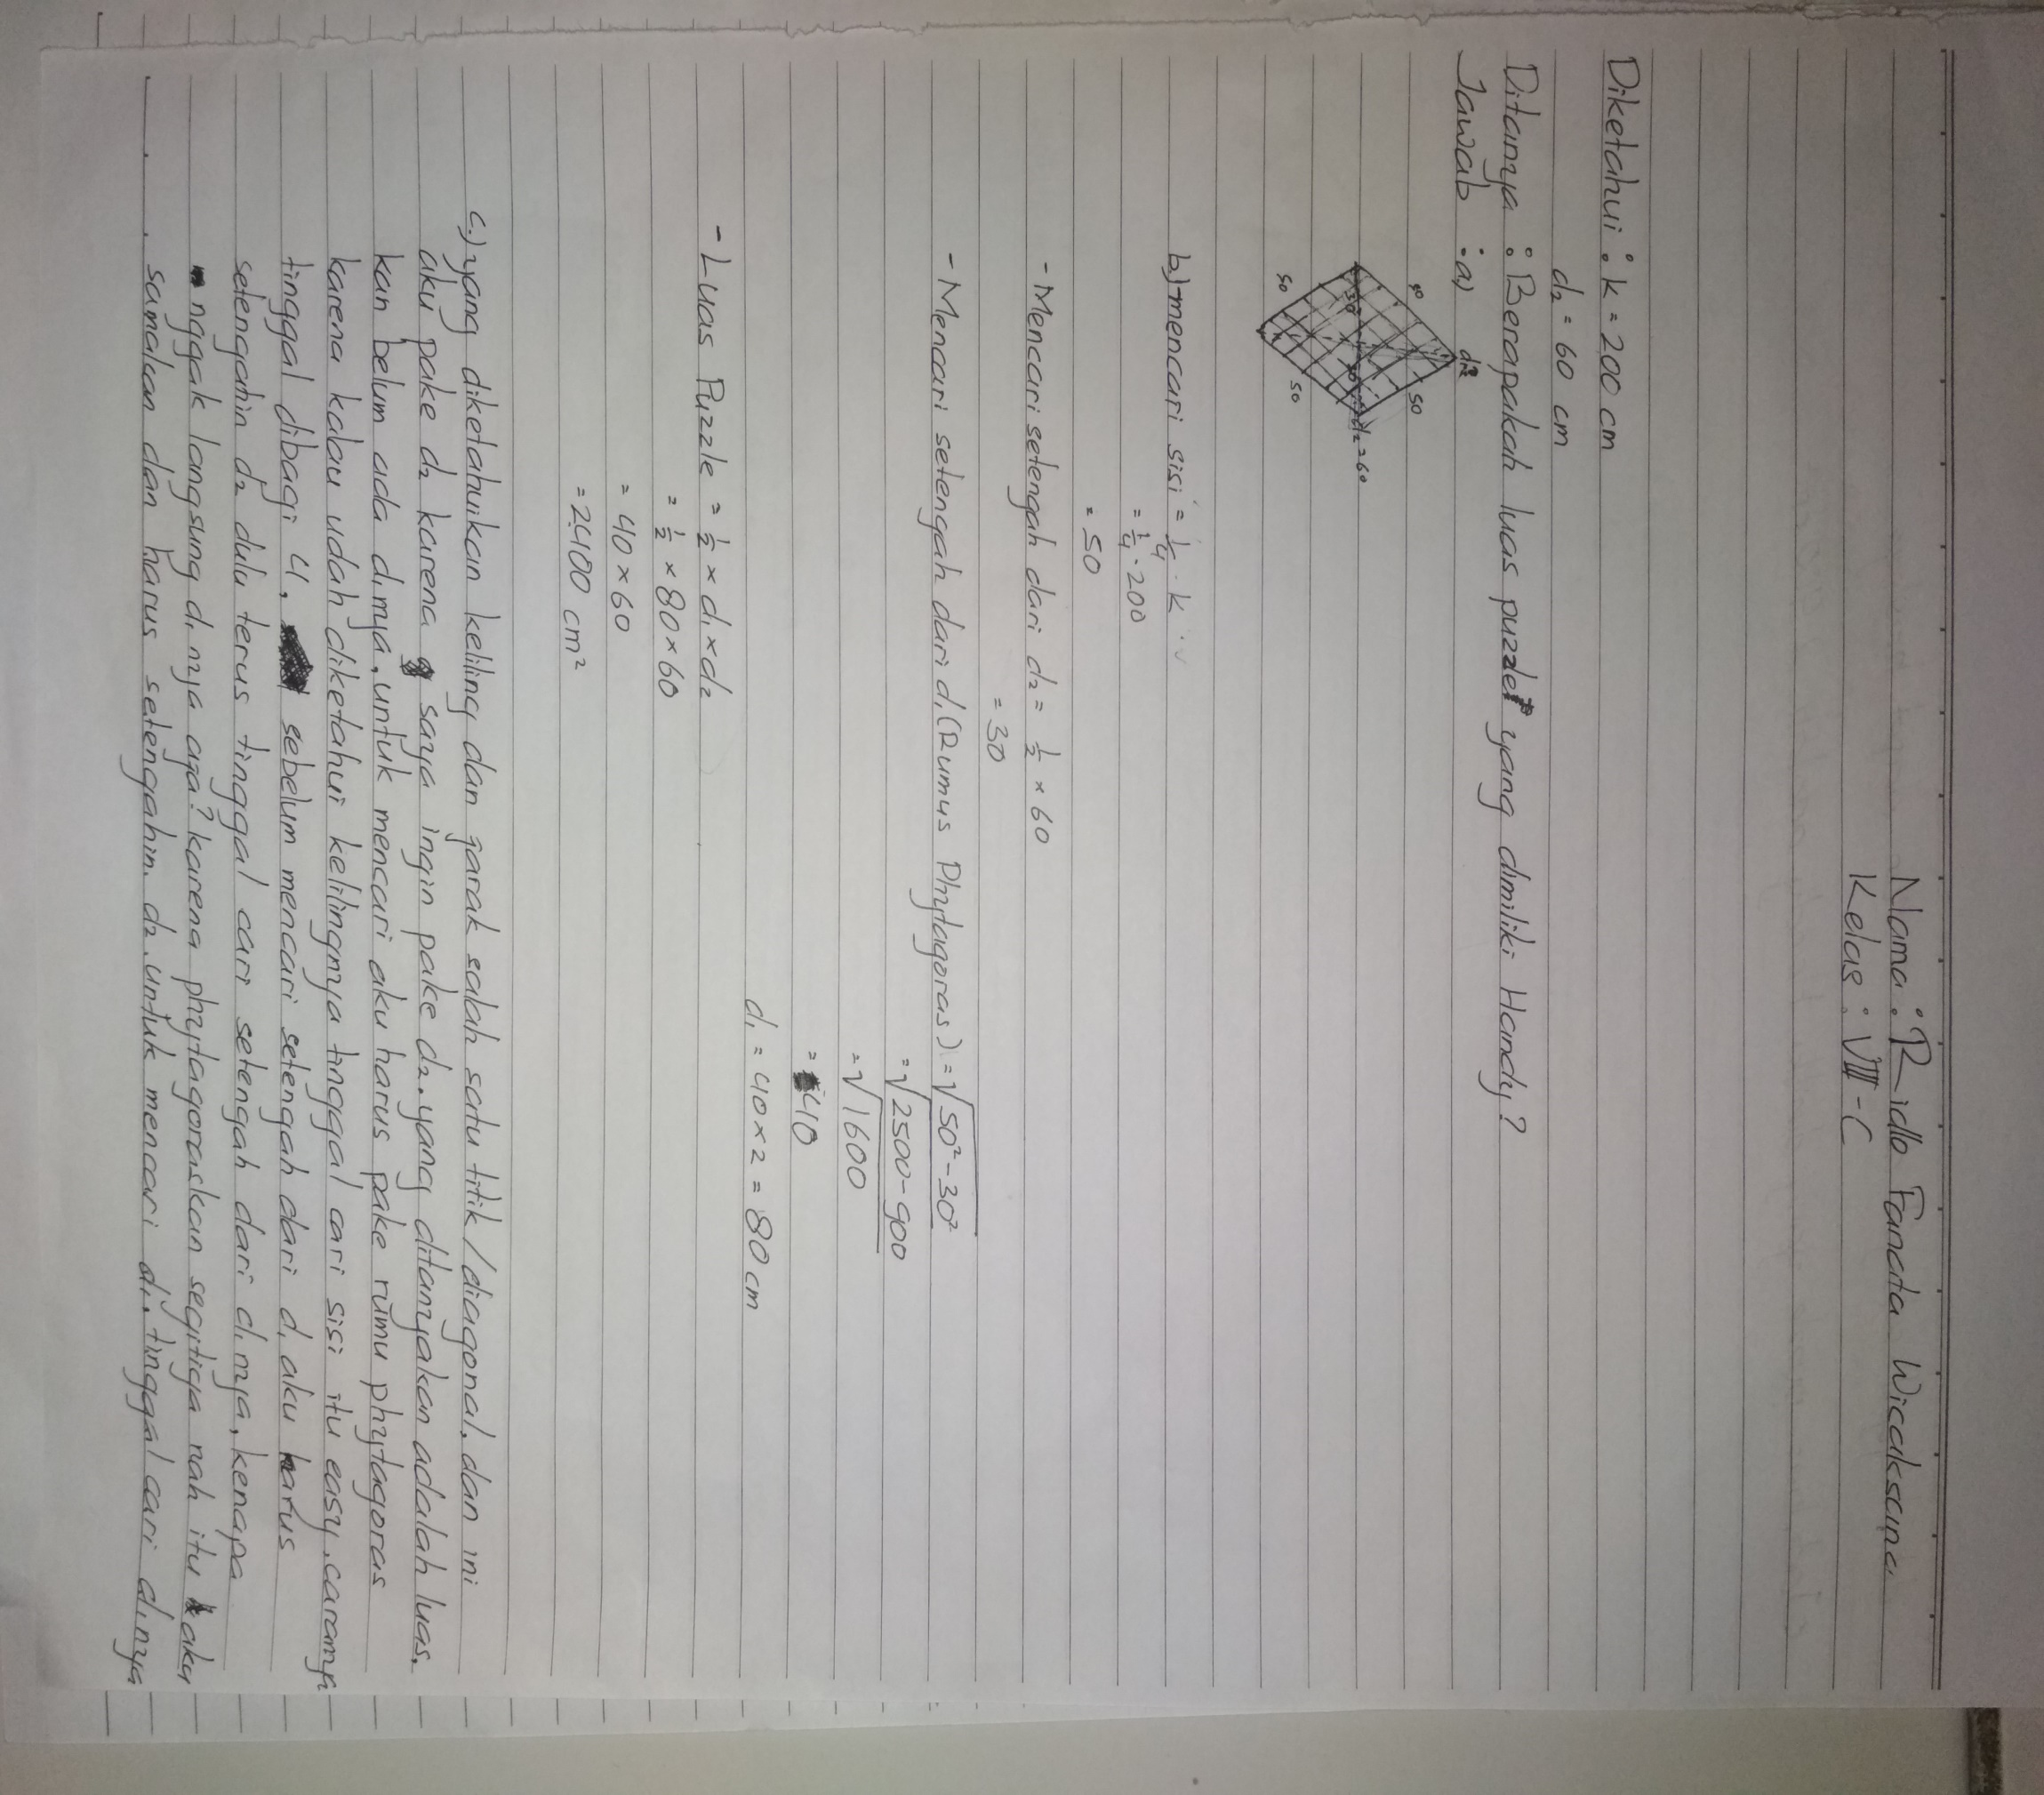 Nama : Ridlo Fandta Wicaksana
Kelas : VIII-C
Diketahui : k = 200 cm
d₂ = 60 cm
Ditanya : Berapakah luas puzzle yang dimiliki Handy?
Jawab : a)
d₁?
50
50
50
30
d₂ = 60
50
b) mencari sisi = 1/4 . k
= 1/4 . 200
= 50
- Mencari setengah dari d₂ = 1/2 × 60
= 30
- Mencari setengah dari d₁ (Rumus Phytagoras) = √50² - 30²
= √2500 - 900
= √1600
= 40
d₁ = 40 × 2 = 80 cm
- Luas Puzzle = 1/2 × d₁ × d₂
= 1/2 × 80 × 60
= 40 × 60
= 2400 cm²
c.) yang diketahuikan keliling dan jarak salah satu titik / diagonal. dan ini
aku pake d₂ karena saya ingin pake d₂. yang ditanyakan adalah luas.
kan belum ada d₁nya. untuk mencari aku harus pake rumu phytagoras
karena kalau udah diketahui kelilingnya tinggal cari sisi itu easy. caranya
tinggal dibagi 4, sebelum mencari setengah dari d₁ aku harus
setengahin d₂ dulu terus tinggal cari setengah dari d₁nya, kenapa
nggak langsung d₁nya aja? karena phytagoraskan segitiga nah itu aku
samakan dan harus setengahin. d₂. untuk mencari d₁. tinggal cari d₁nya